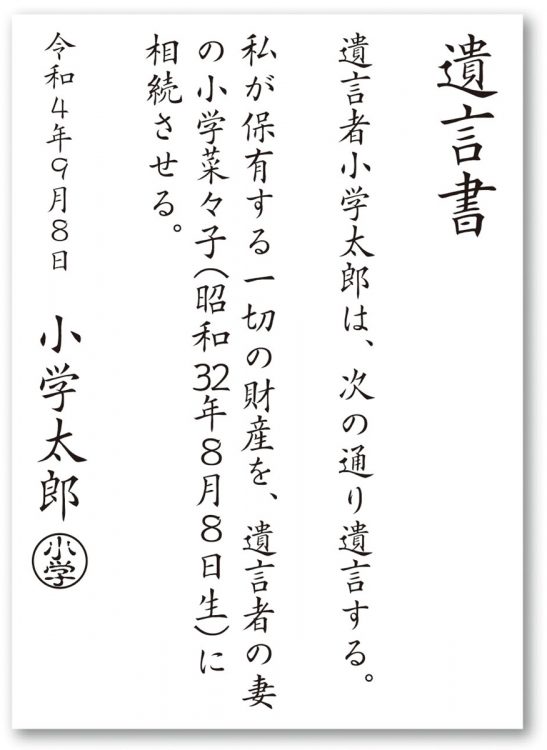 遺言書
遺言者小学太郎は、次の通り遺言する。
私が保有する一切の財産を、遺言者の妻
の小学菜々子(昭和32年8月8日生)に
相続させる。
令和4年9月8日
小学太郎
小学